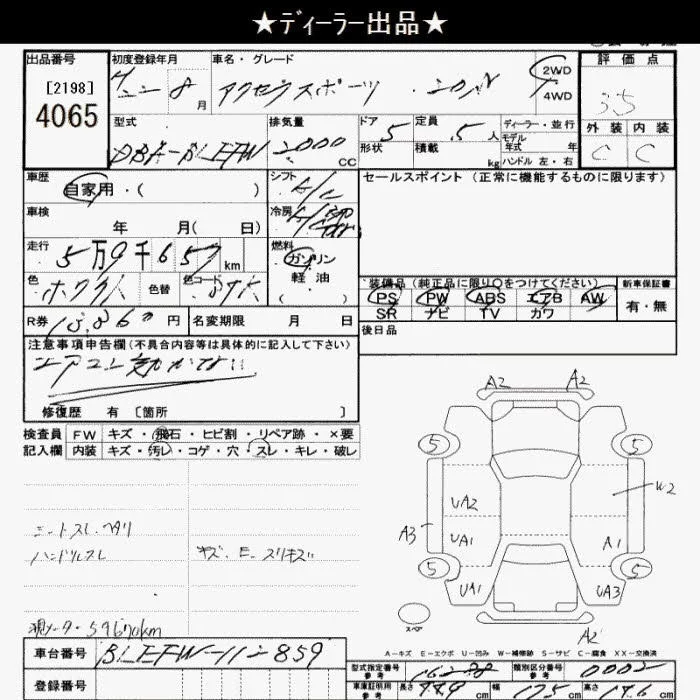 ★ディーラー出品★
出品番号
[2198]
4065
初度登録年月
8
月
車名・グレード
アクセラスポーツ
2WD
4WD
評価点
3.5
外装 内装
C C
型式
DBA-BLEFW
排気量
2000
CC
ドア
5
形状
定員
5
人
積載
kg
ディーラー・並行
モデル
年式 年
ハンドル 左・右
車歴
自家用・( )
シフト
車検
年 月( 日)
冷房
セールスポイント (正常に機能するものに限ります)
走行
5万9千657
km
燃料
ガソリン
軽油
( )
色
色替
色コード
装備品 (純正品に限り○をつけてください)
PS PW ABS エアB AW
SR ナビ TV カワ
新車保証書
有・無
R券
円
名変期限 月 日
後日品
注意事項申告欄(不具合内容等は具体的に記入して下さい)
修復歴 有 [箇所 ]
検査員
記入欄
FW キズ・飛石・ヒビ割・リペア跡・×要
内装 キズ・汚レ・コゲ・穴・スレ・キレ・破レ
シートスレ・ヘタリ
ハンドルスレ
A2 A2
5 5
UA2
W2
A3
UA1
A1
5 5
UA1
UA3
スペア
A2
A-キズ E-エクボ U-凹み W-補修跡 S-サビ C-腐食 XX-交換済
車台番号
BLEFW-112859
登録番号
型式指定番号
参考
16238
類別区分番号
参考
0002
車庫証明用
参考
長さ
449
cm
幅
175
cm
高さ
146
cm